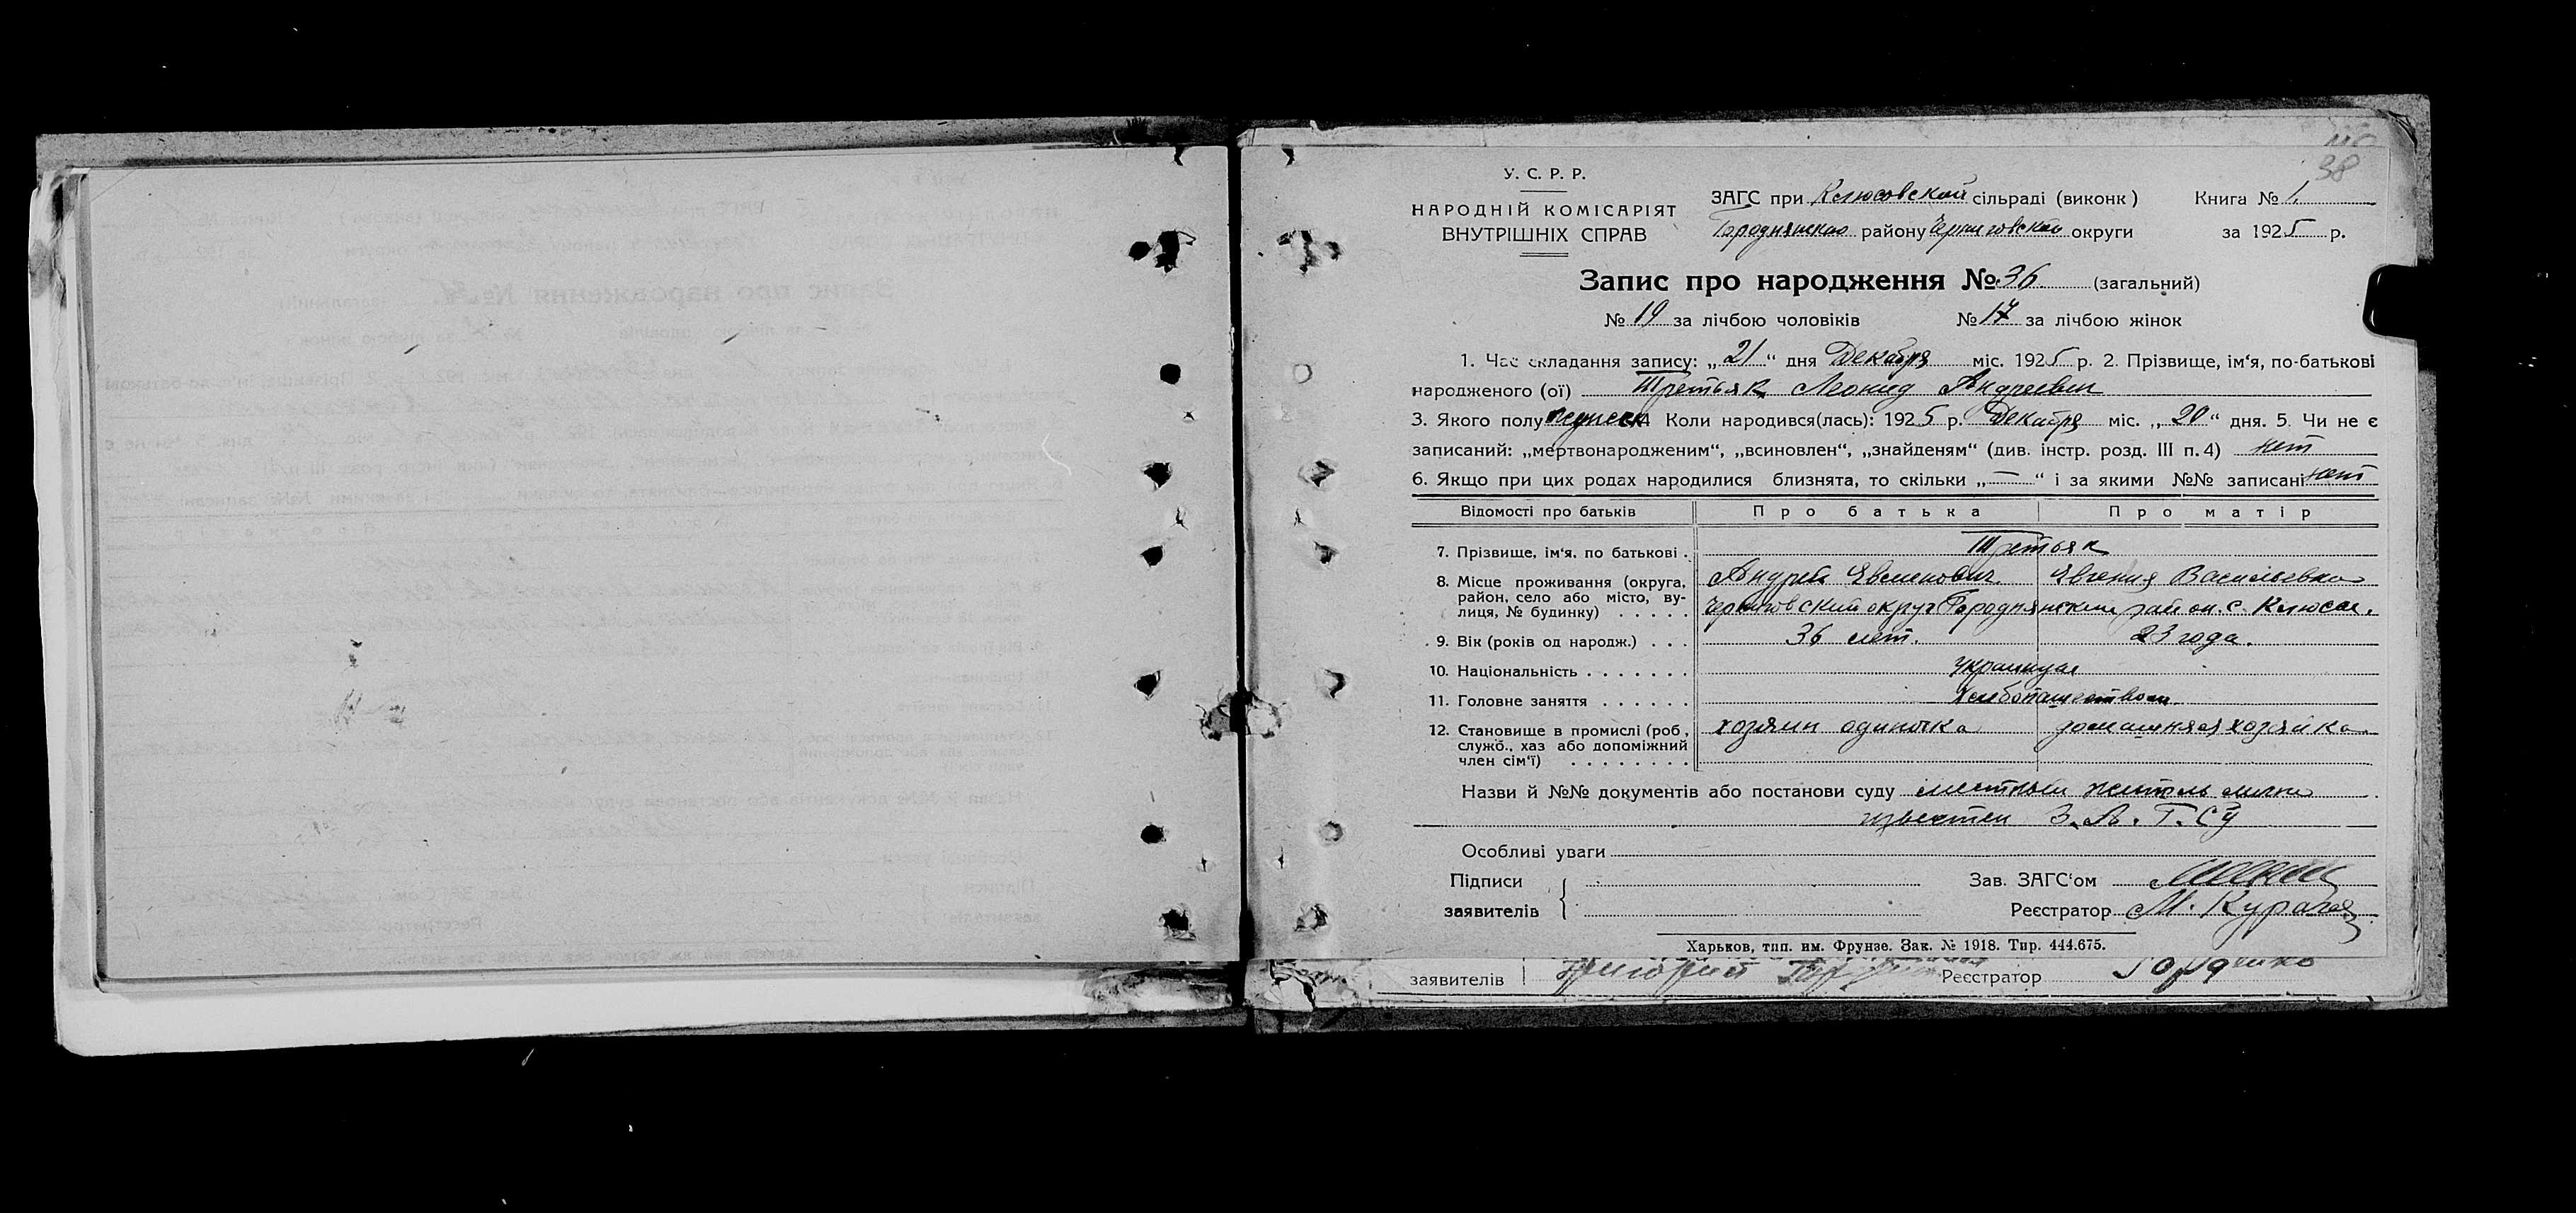 38
У. С. Р. Р.
НАРОДНІЙ КОМІСАРІЯТ
ВНУТРІШНІХ СПРАВ
ЗАГС при Клюсовской сільраді (виконк)
Городнянского району Черниговской округи
Книга № 1.
за 1925 р.
Запис про народження № 36. (загальний)
№ 19 за лічбою чоловіків № 17 за лічбою жінок
1. Час складання запису: „21“ дня Декабря міс. 1925 р. 2. Прізвище, ім‘я, по-батькові
народженого (ої) Третьяк Леонид Андреевич
3. Якого полу 4 Коли народився(лась): 1925 р. Декабря міс. „20“ дня. 5. Чи не є
записаний: „мертвонародженим“, „всиновлен“, „знайденям“ (див. інстр. розд. III п. 4) нет
6. Якщо при цих родах народилися близнята, то скільки „—“ і за якими №№ записані нет
Відомості про батьків Про батька Про матір
7. Прізвище, ім‘я, по батькові . Третьяк
Андрей Явменович Явгения Васильевна
8. Місце проживання (округа,
район, село або місто, ву-
лиця, № будинку) . . . . .
Черниговский округ Городнянский район. с. Клюсы.
9. Вік (років од народж.) . . . 36 лет. 23 года.
10. Національність . . . . . . . Украинцы
11. Головне заняття . . . . . . Хлебопашеством.
12. Становище в промислі (роб.,
служб., хаз або допоміжний
член сім‘ї) . . . . . . . .
хозяин одиночка домашняя хозяйка.
Назви й №№ документів або постанови суду местный житель лично
известен З. А. Г. Су
Особливі уваги
Підписи
заявителів
Зав. ЗАГС‘ом
Реєстратор М.
Харьков, тип. им. Фрунзе. Зак. № 1918. Тир. 444.675.
заявителів Григорий Реєстратор